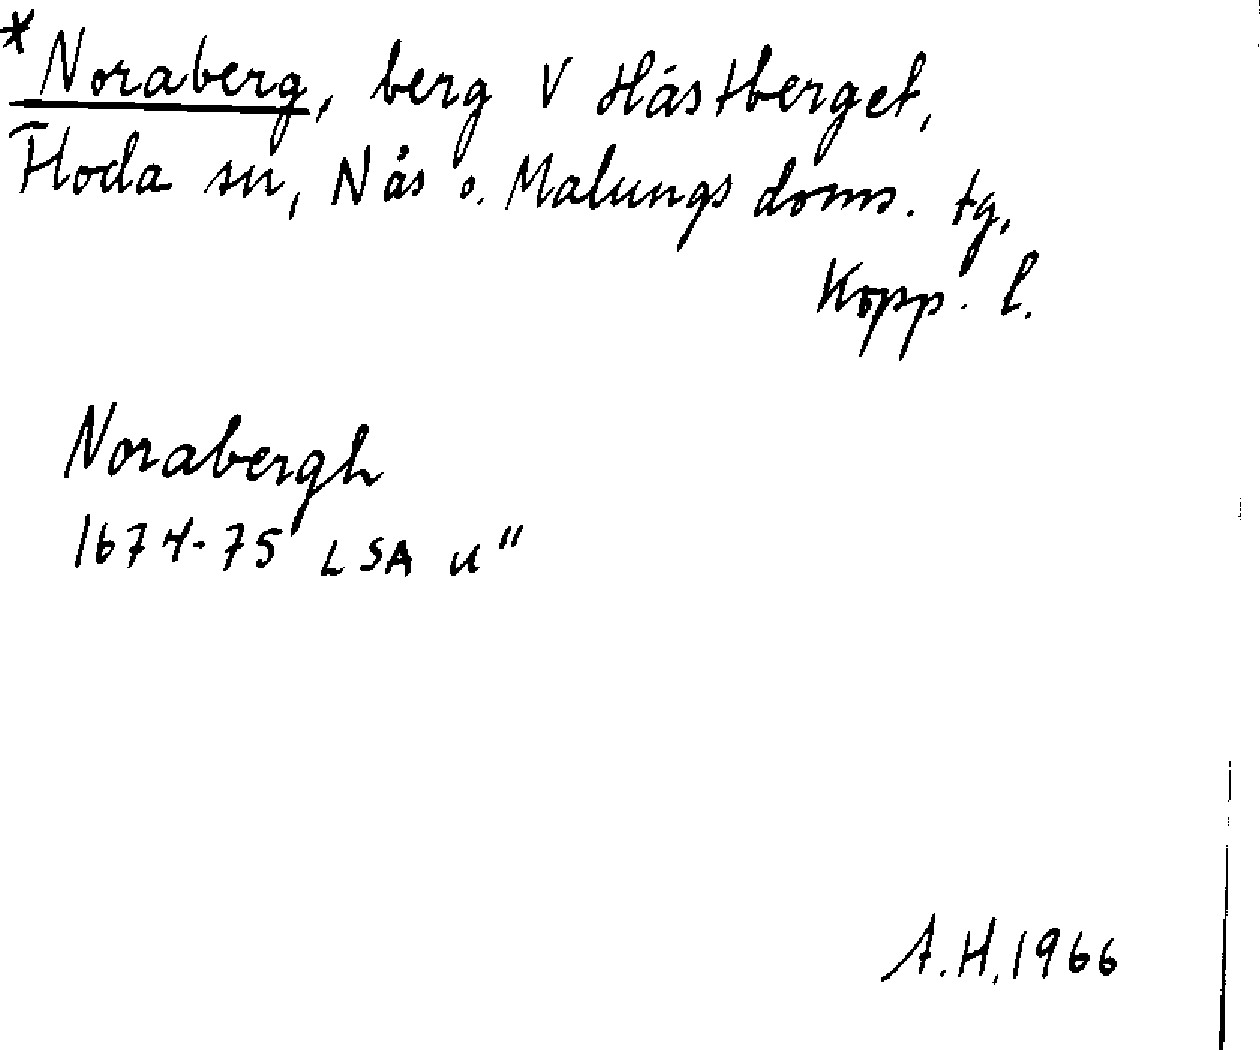 *Noraberg, berg V Hästberget,
Floda sn, Nås o. Malungs doms. tg,
Kopp. l.
Norabergh
1674-75 LSA u"
A.H. 1966